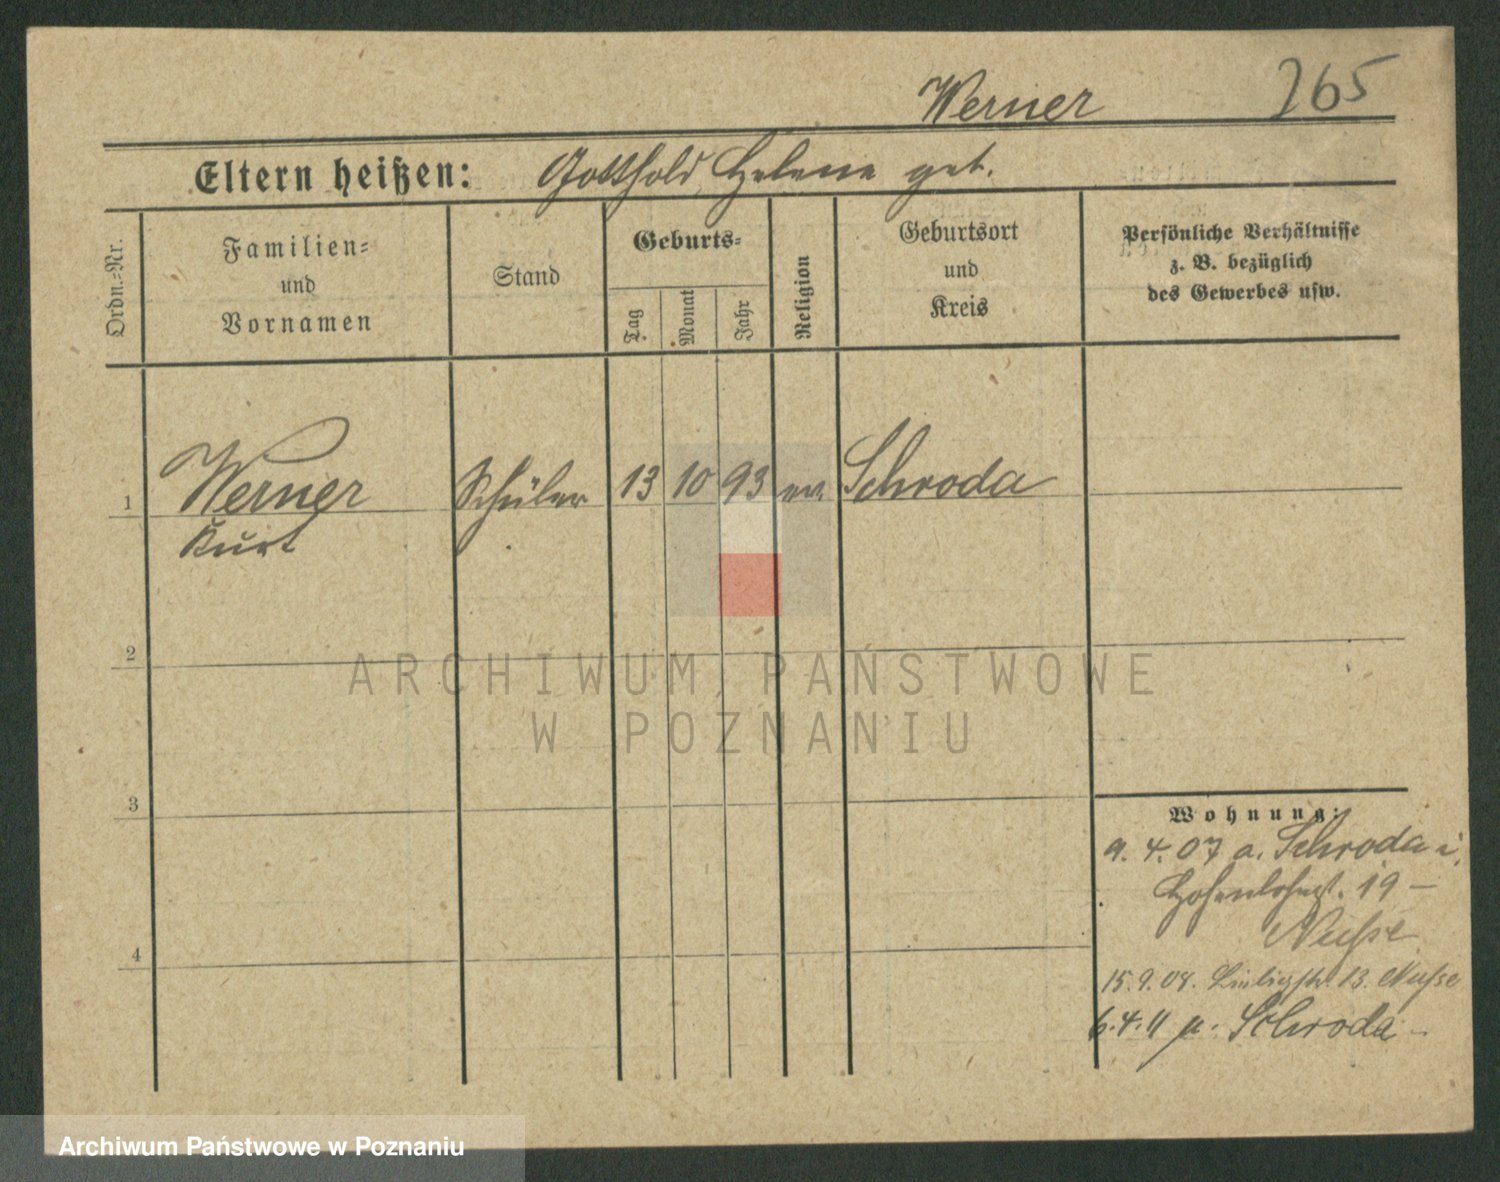 Werner 265
Eltern heißen: Gotthold, Helene geb.
Ordn.-Nr.
Familien-
und
Vornamen
Stand
Geburts-
Tag
Monat
Jahr
Religion
Geburtsort
und
Kreis
Persönliche Verhältnisse
z. B. bezüglich
des Gewerbes usw.
1 Werner Schüler 13 10 93 ev. Schroda
Kurt
2
3
4
Wohnung:
9. 4. 07 a. Schroda i.
19 –
Nuhse
15. 9. 08. 13. Nuhse
6. 4. 11 n. Schroda –
ARCHIWUM PAŃSTWOWE
W POZNANIU
Archiwum Państwowe w Poznaniu